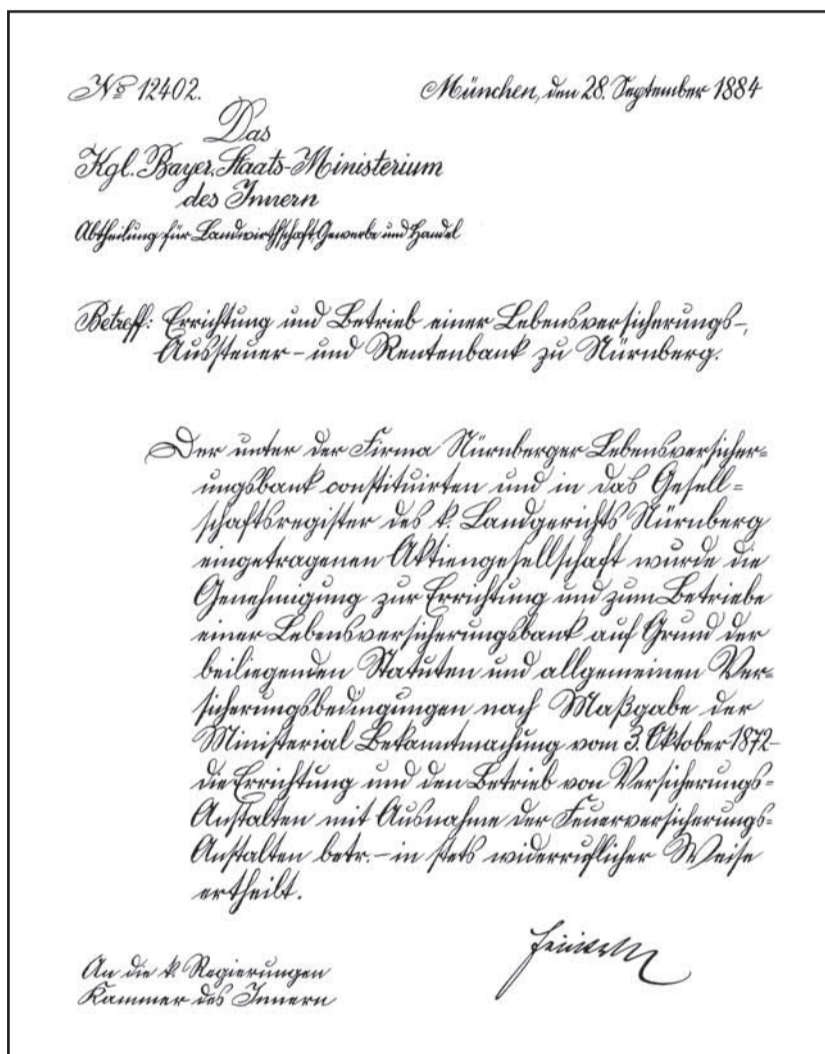 No 12402.
München, den 28. September 1884
Das
Kgl. Bayer. Staats-Ministerium
des Innern
Abtheilung für Landwirthschaft, Gewerbe und Handel
Betreff: Errichtung und Betrieb einer Lebensversicherungs-,
Aussteuer- und Rentenbank zu Nürnberg.
Der unter der Firma Nürnberger Lebensversicher=
ungsbank constituirten und in das Gesell=
schaftsregister des k. Landgerichts Nürnberg
eingetragenen Aktiengesellschaft wurde die
Genehmigung zur Errichtung und zum Betriebe
einer Lebensversicherungsbank auf Grund der
beiliegenden Statuten und allgemeinen Ver=
sicherungsbedingungen nach Maßgabe der
Ministerial Bekanntmachung vom 3. Oktober 1872-
die Errichtung und den Betrieb von Versicherungs=
Anstalten mit Ausnahme der Feuerversicherungs=
Anstalten betr. - in stets widerruflicher Weise
ertheilt.
An die k. Regierungen
Kammer des Innern